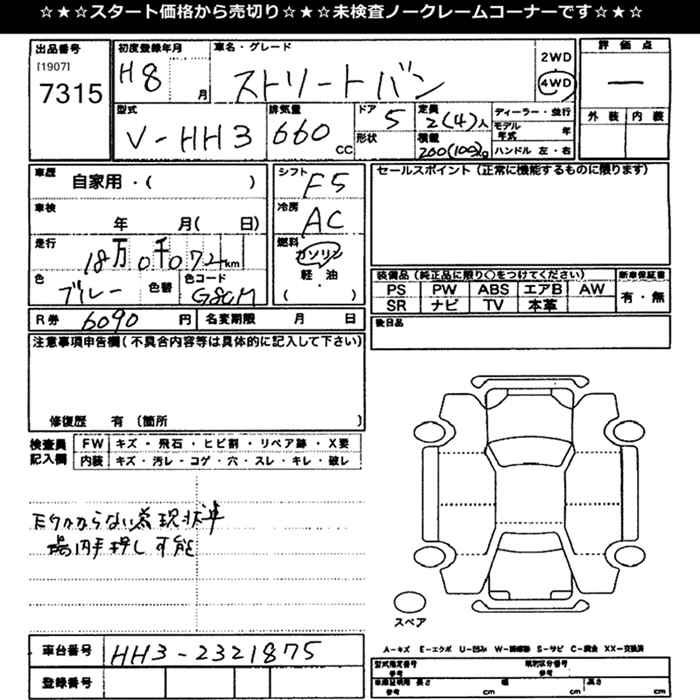 ☆★☆★スタート価格から売切り☆★☆★未検査ノークレームコーナーです☆★☆
出品番号 初度登録年月 車名・グレード 評価点
[1907]
7315 H8 月 ストリートバン 2WD 4WD —
外装 内装
型式 排気量 ドア 定員 ディーラー・並行
V-HH3 660 CC 5 2(4)人 モデル年式 年
形状 積載 200(100)kg ハンドル 左・右
車歴 シフト セールスポイント(正常に機能するものに限ります)
自家用・( ) F5
車検 冷房
年 月( 日) AC
走行 燃料
18万0千072km ガソリン
色 色替 色コード 軽・油
ブルー G80M ( )
装備品(純正品に限り○をつけてください) 新車保証書
PS PW ABS エアB AW 有・無
SR ナビ TV 本革
R券 6090 円 名変期限 月 日
後日品
注意事項申告欄(不具合内容等は具体的に記入して下さい)
修復歴 有(箇所 )
検査員 FW キズ・飛石・ヒビ割・リペア跡・X要
記入欄 内装 キズ・汚レ・コゲ・穴・スレ・キレ・破レ
現状準
場内手押し可能
スペア
A-キズ E-エクボ U-凹み W-補修跡 S-サビ C-腐食 XX-交換済
車台番号 HH3-2321875
型式指定番号 類別区分番号
参考 参考
登録番号
車庫証明用 長さ 幅 高さ
参考 cm cm cm